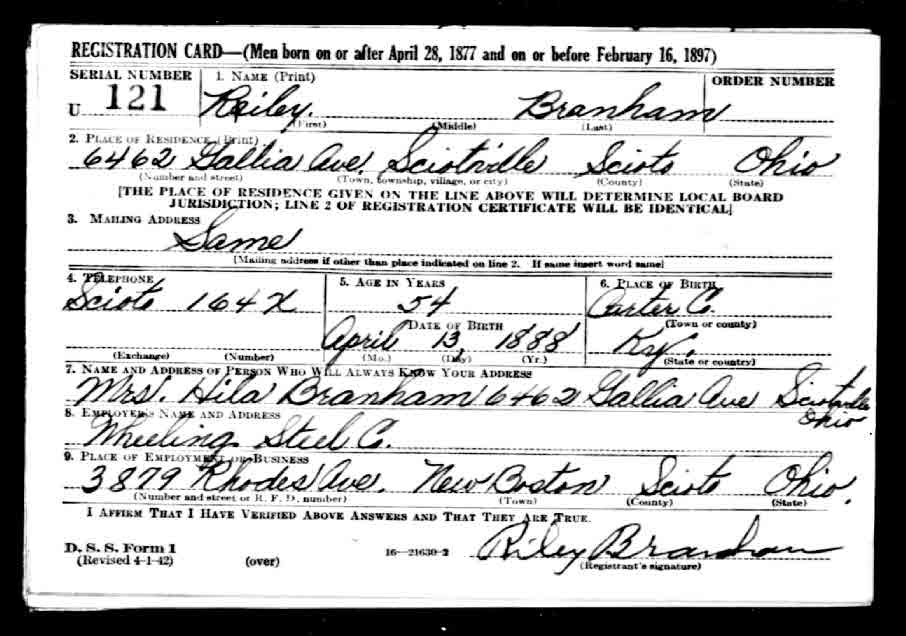 REGISTRATION CARD—(Men born on or after April 28, 1877 and on or before February 16, 1897)
SERIAL NUMBER 1. NAME (Print) ORDER NUMBER
U 121 Reiley. Branham
(First) (Middle) (Last)
2. PLACE OF RESIDENCE (Print)
6462 Gallia Ave. Sciotville Scioto Ohio
(Number and street) (Town, township, village, or city) (County) (State)
[THE PLACE OF RESIDENCE GIVEN ON THE LINE ABOVE WILL DETERMINE LOCAL BOARD
JURISDICTION; LINE 2 OF REGISTRATION CERTIFICATE WILL BE IDENTICAL]
3. MAILING ADDRESS
Same
[Mailing address if other than place indicated on line 2. If same insert word same]
4. TELEPHONE 5. AGE IN YEARS 6. PLACE OF BIRTH
Scioto 164X 54 Carter C.
DATE OF BIRTH (Town or county)
April 13, 1888 Ky.
(Exchange) (Number) (Mo.) (Day) (Yr.) (State or country)
7. NAME AND ADDRESS OF PERSON WHO WILL ALWAYS KNOW YOUR ADDRESS
Mrs. Hila Branham 6462 Gallia Ave Sciotville
Ohio
8. EMPLOYER'S NAME AND ADDRESS
Wheeling Steel C.
9. PLACE OF EMPLOYMENT OR BUSINESS
3879 Rhodes Ave. New Boston Scioto Ohio.
(Number and street or R. F. D. number) (Town) (County) (State)
I AFFIRM THAT I HAVE VERIFIED ABOVE ANSWERS AND THAT THEY ARE TRUE.
D. S. S. Form 1
(Revised 4-1-42) (over) 16—21630-2 Riley Branham
(Registrant's signature)